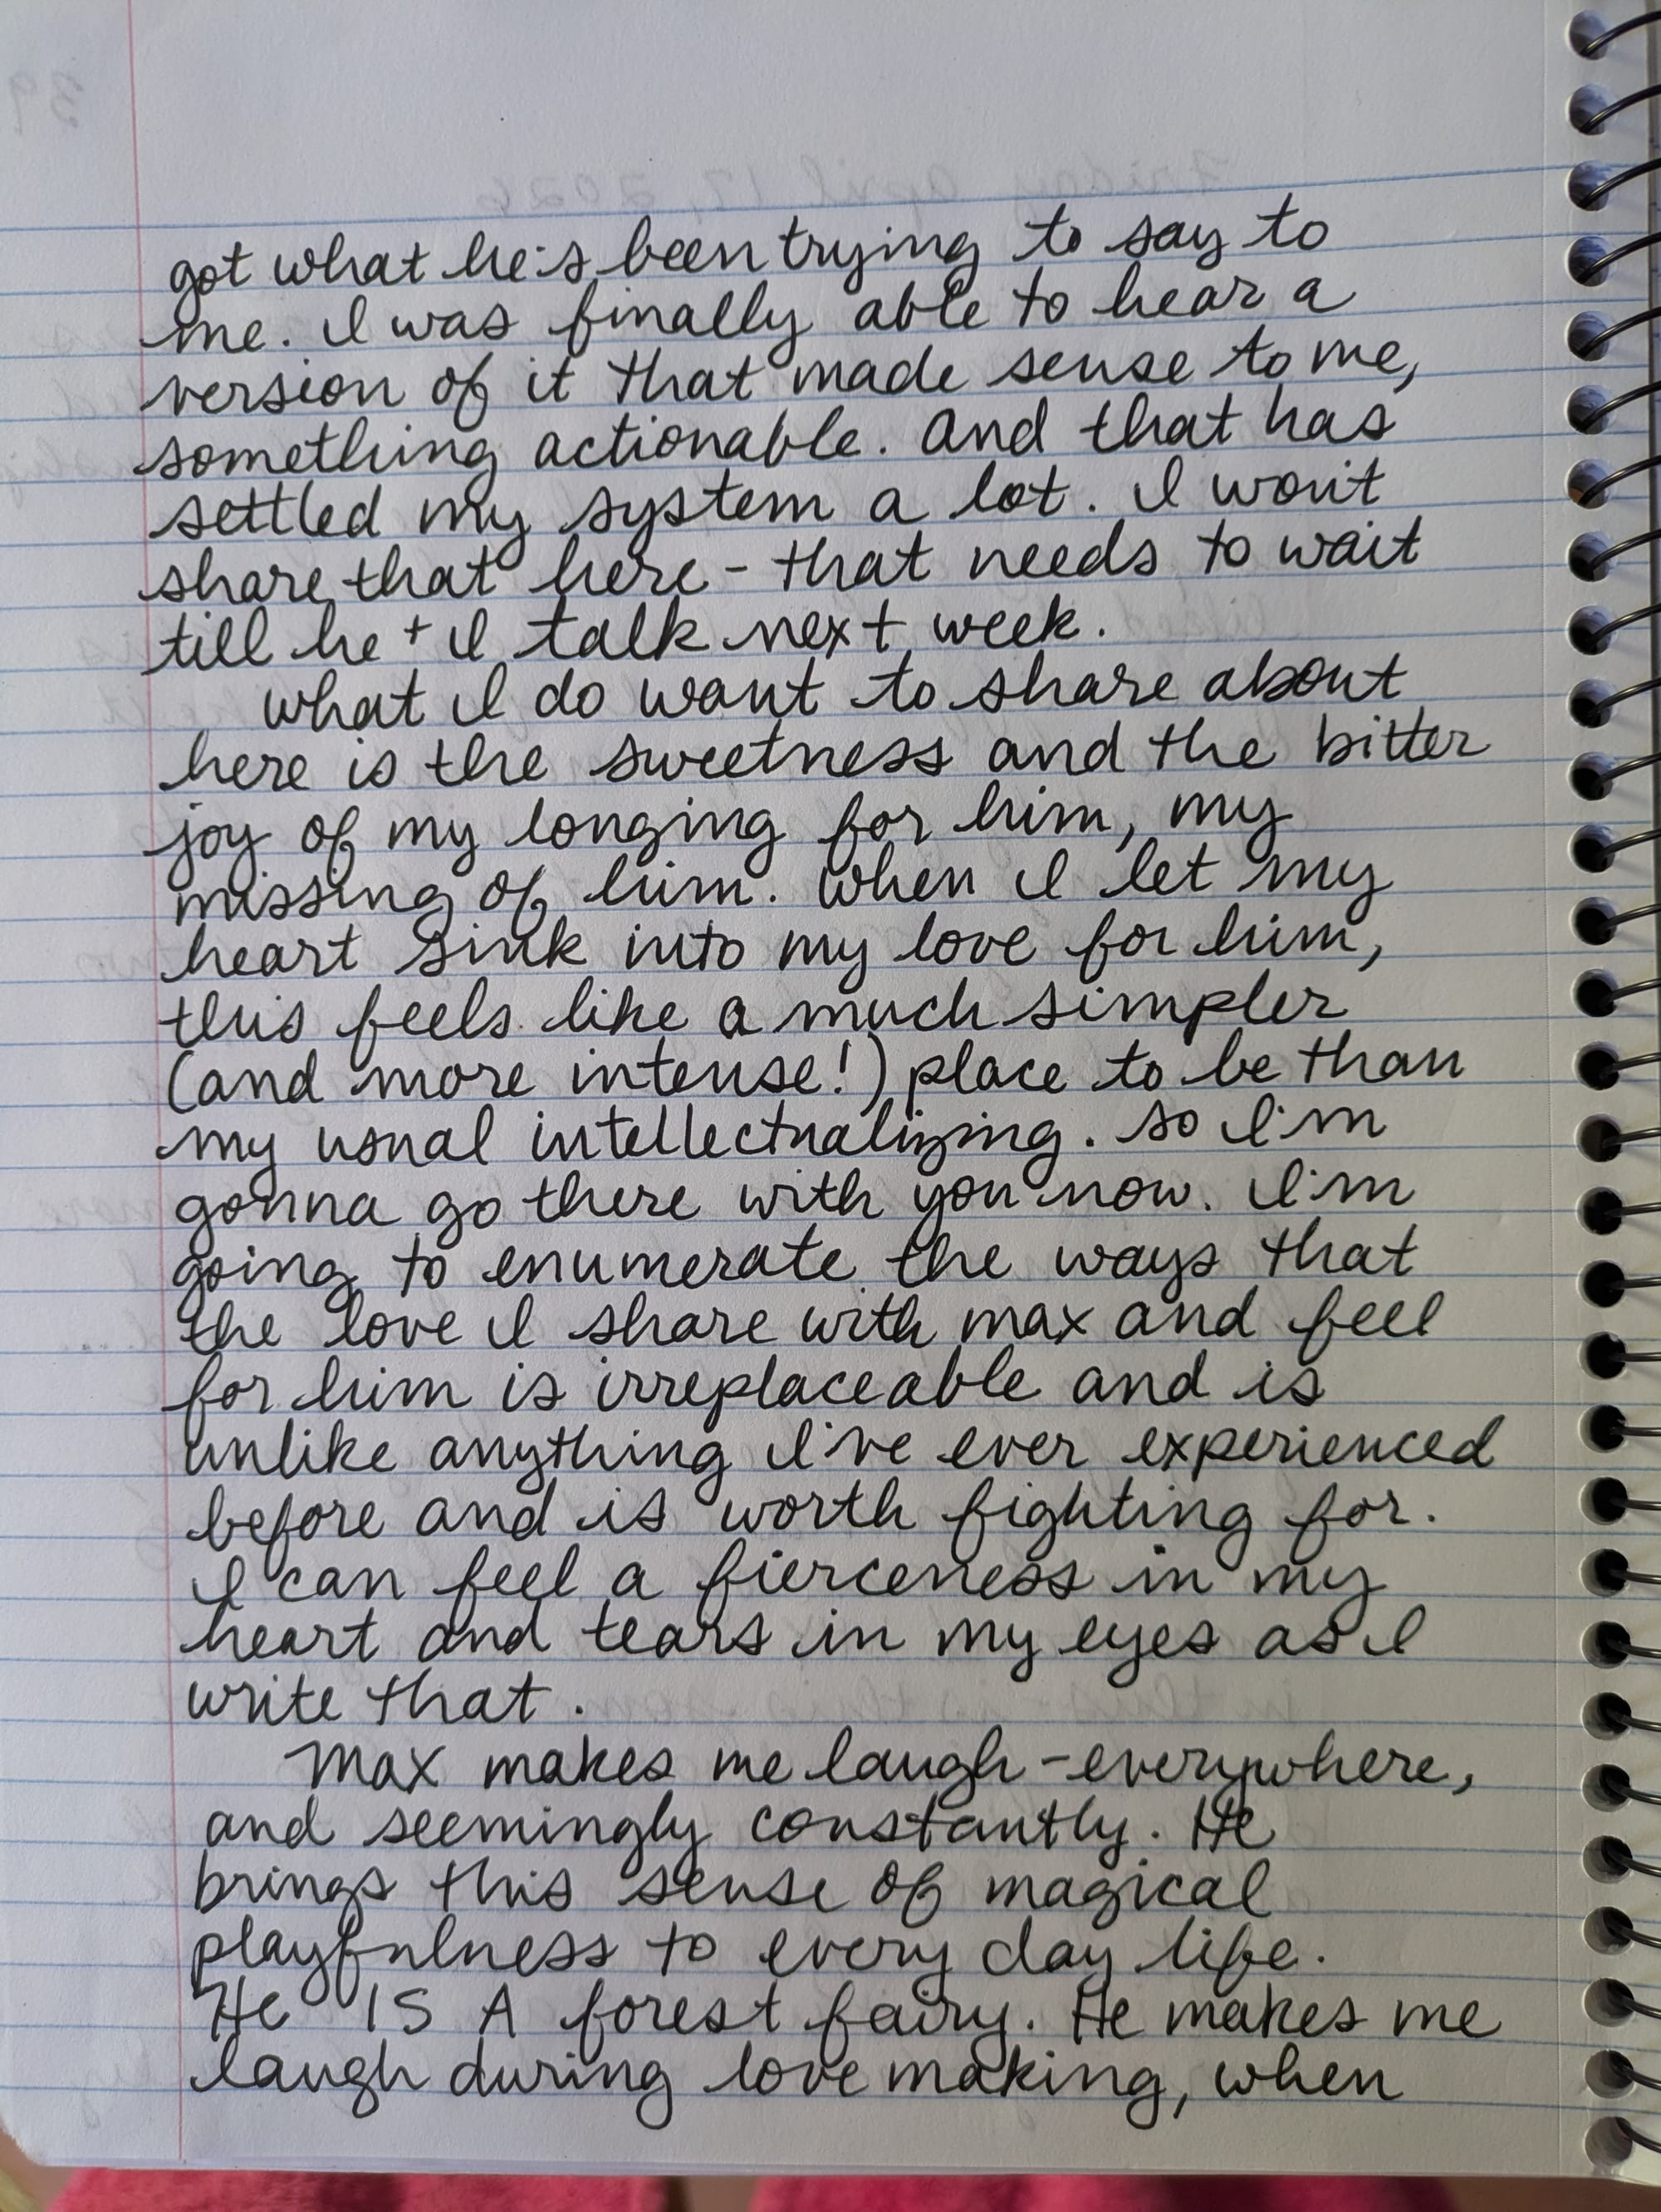 got what he's been trying to say to
me. I was finally able to hear a
version of it that made sense to me,
something actionable. And that has
settled my system a lot. I won't
share that here - that needs to wait
till he + I talk next week.
What I do want to share about
here is the sweetness and the bitter
joy of my longing for him, my
missing of him. When I let my
heart sink into my love for him,
this feels like a much simpler
(and more intense!) place to be than
my usual intellectualizing. So I'm
gonna go there with you now. I'm
going to enumerate the ways that
the love I share with Max and feel
for him is irreplaceable and is
unlike anything I've ever experienced
before and is worth fighting for.
I can feel a fierceness in my
heart and tears in my eyes as I
write that.
Max makes me laugh - everywhere,
and seemingly constantly. He
brings this sense of magical
playfulness to every day life.
He IS A forest fairy. He makes me
laugh during love making, when